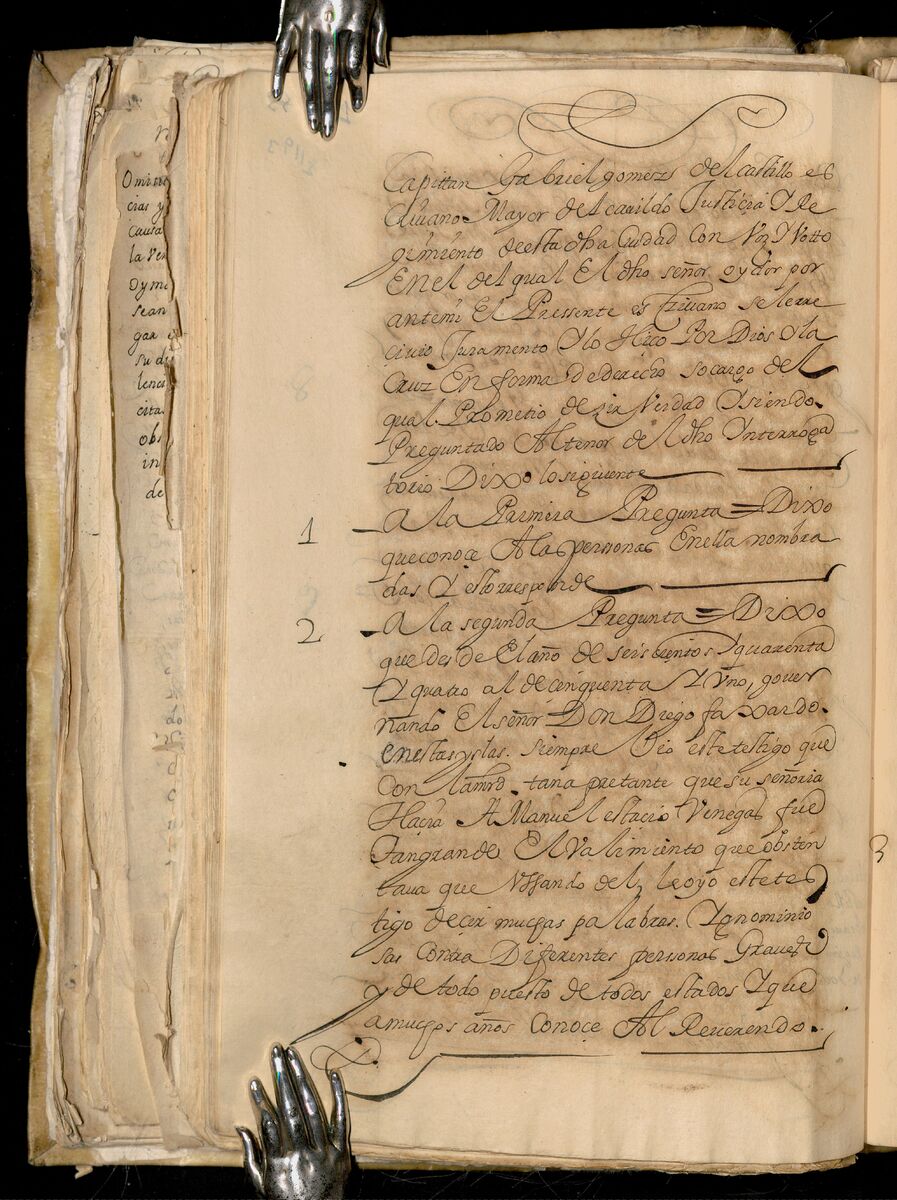 Omitie
cias y
Causa
la Ven
Dyme
sean
gar
su di
lenci
cita
obs
in
de
Capittan Gabriel gomezs del castillo es
Criuano Mayor del cauildo Justicia Y Re
gimiento de esta dha Ciudad con Voz Y Votto
En el del qual El dho señor oydor por
antemi El Pressente esscriuano se le rre
ciuio Juramento Y lo Hiço Por Dios Y la
Cruz En forma de derecho so cargo del
qual. Prometio dezir Verdad Y siendo.
Preguntado Al tenor del dho Ynterroga
torio Dixo lo siguiente
1 A la Primera Pregunta = Dixo
que conoce A las personas En ella nombra
das Y esto rresponde
2 A la segunda Pregunta = Dixo
que desde El año de seiscientos Y quarenta
Y quatro al de cinquenta Y Vno, gouer
nando El señor Don Diego faxardo.
en estas yslas. siempre Vio este testigo que
con la mrd. tan apretante que su señoria
Haçia A Manuel estacio Venegas fue
Tan grande El Valimiento que obsten
taua que Vssando del, le oyo este tes
tigo decir muchas palabras. Ygnominio
sas contra Diferentes personas Graues
y de todo puesto de todos estados Y que
a muchos años conoce Al Reuerendo.
3